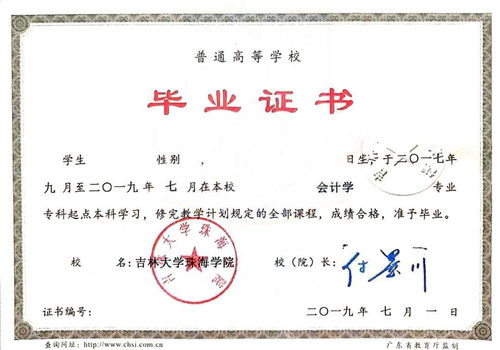 普通高等学校
毕业证书
学生 性别 , 日生,于二〇一七年
九月至二〇一九年 七月在本校 会计学 专业
专科起点本科学习，修完教学计划规定的全部课程，成绩合格，准予毕业。
校 名：吉林大学珠海学院 校（院）长：
吉林大学珠海学院
证书编号： 二〇一九年 七月 一日
查询网址：http://www.chsi.com.cn 广东省教育厅监制